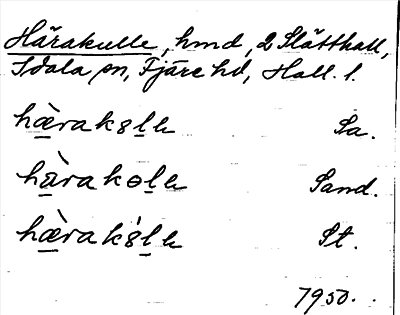 Härakulle, hmd, 2 Slätthall,
Idala sn, Fjäre hd, Hall. l.
hæ̀rakslh Sa.
hàrakoln Sand.
hæ̀raks̍lh St.
7950.